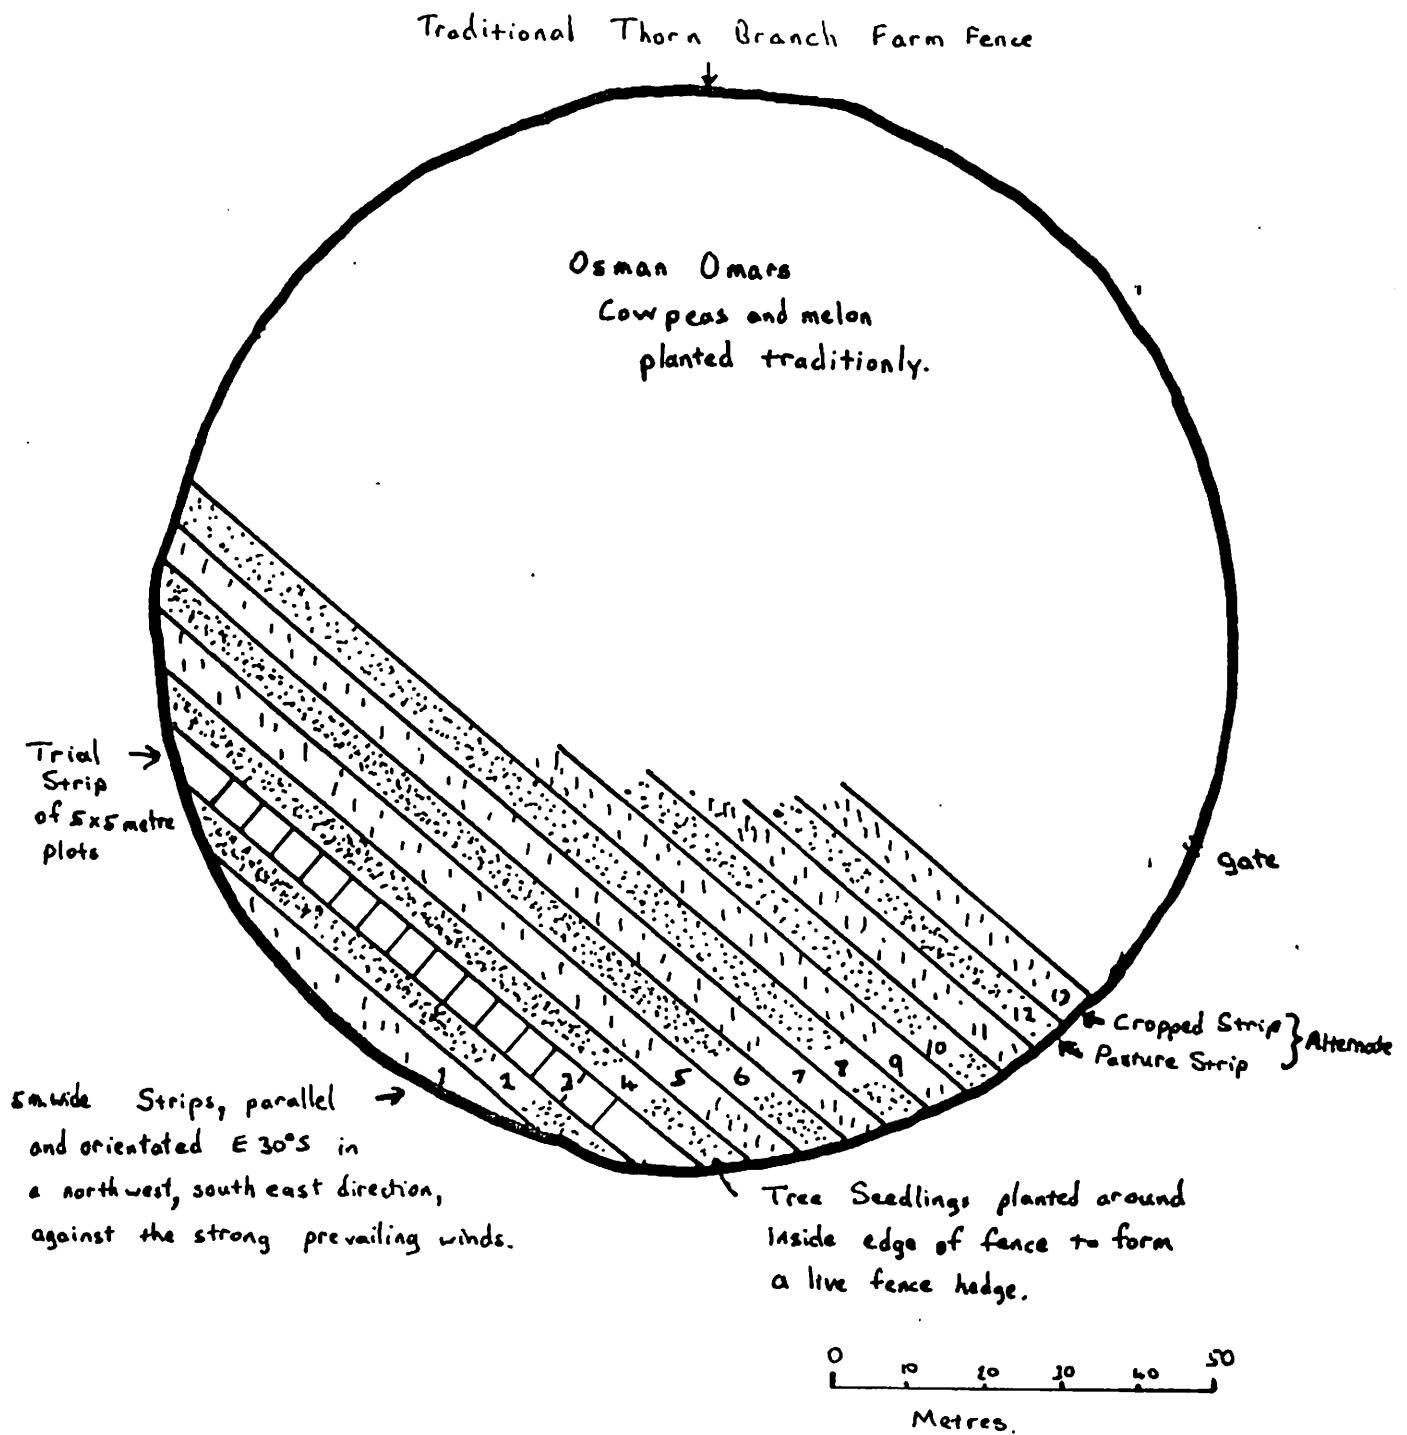 Traditional Thorn Branch Farm Fence
Osman Omars
Cowpeas and melon
planted traditionly.
Trial
Strip
of 5x5 metre
plots
gate
1 2 3 4 5 6 7 8 9 10 11 12 13
Cropped Strip
Pasture Strip
Alternate
5m.wide Strips, parallel
and orientated E 30°S in
a northwest, south east direction,
against the strong prevailing winds.
Tree Seedlings planted around
inside edge of fence to form
a live fence hedge.
0 10 20 30 40 50
Metres.